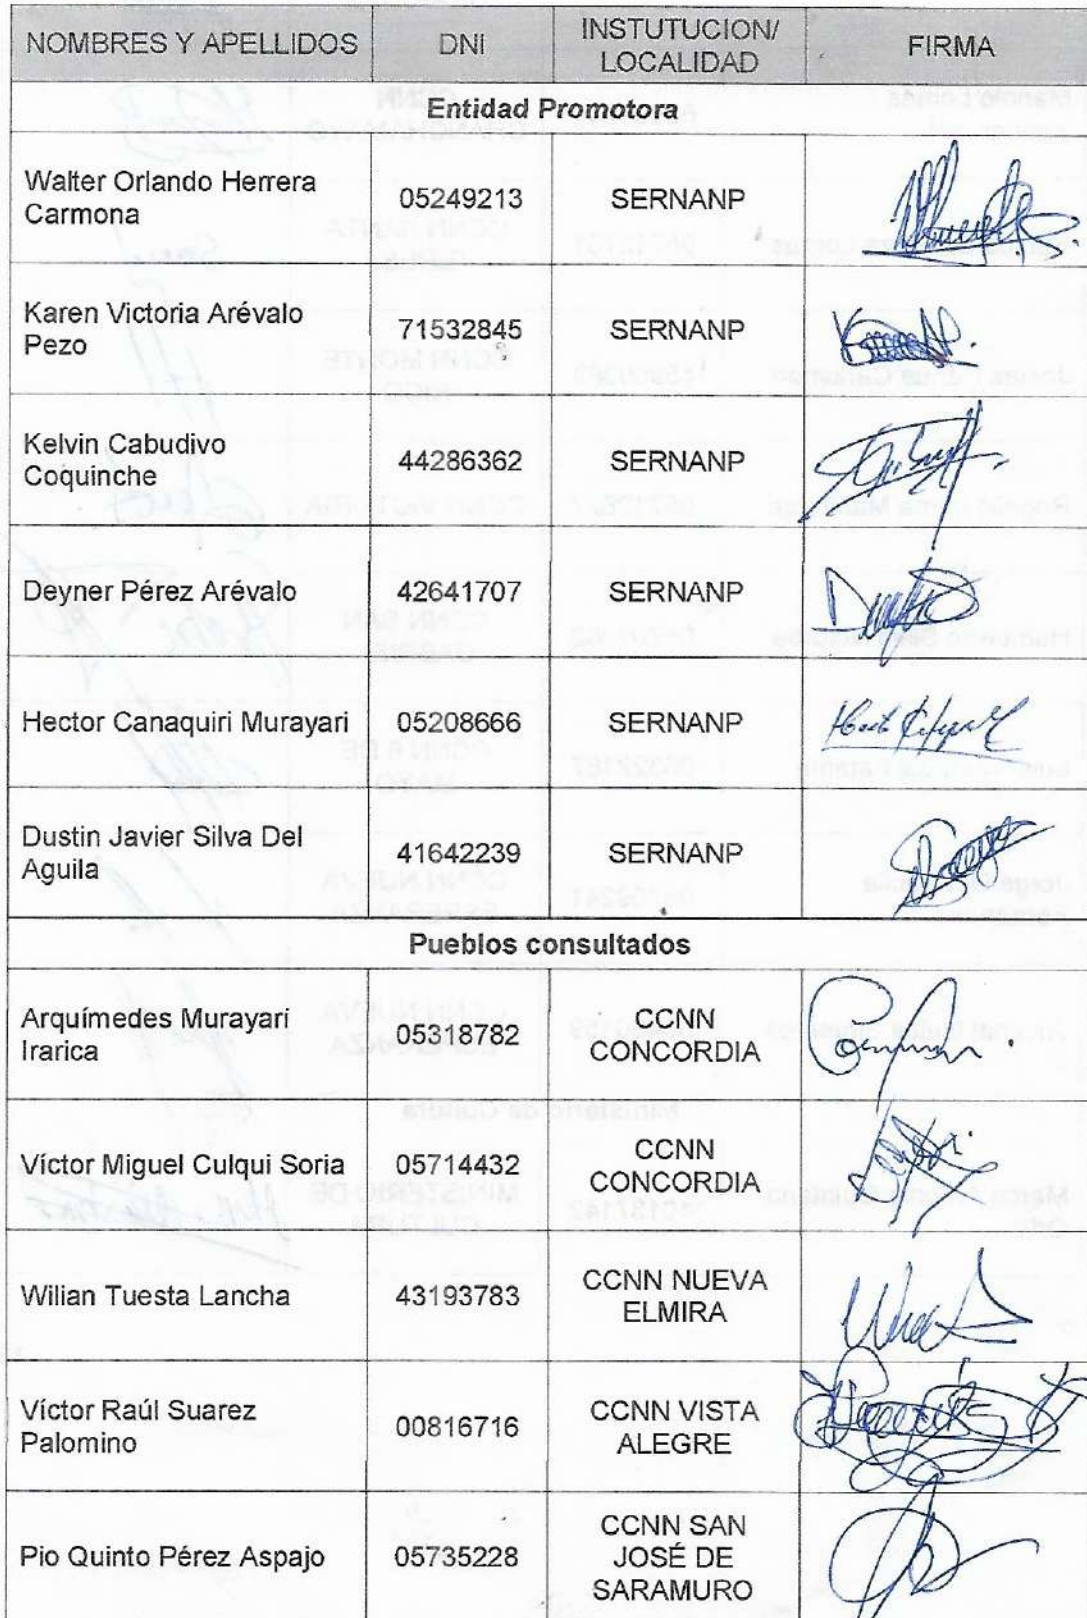 NOMBRES Y APELLIDOS DNI INSTUTUCION/ FIRMA
LOCALIDAD
Entidad Promotora
Walter Orlando Herrera
Carmona 05249213 SERNANP
Karen Victoria Arévalo
Pezo 71532845 SERNANP
Kelvin Cabudivo
Coquinche 44286362 SERNANP
Deyner Pérez Arévalo 42641707 SERNANP
Hector Canaquiri Murayari 05208666 SERNANP
Dustin Javier Silva Del
Aguila 41642239 SERNANP
Pueblos consultados
Arquímedes Murayari
Irarica 05318782 CCNN
CONCORDIA
Víctor Miguel Culqui Soria 05714432 CCNN
CONCORDIA
Wilian Tuesta Lancha 43193783 CCNN NUEVA
ELMIRA
Víctor Raúl Suarez
Palomino 00816716 CCNN VISTA
ALEGRE
Pio Quinto Pérez Aspajo 05735228 CCNN SAN
JOSÉ DE
SARAMURO